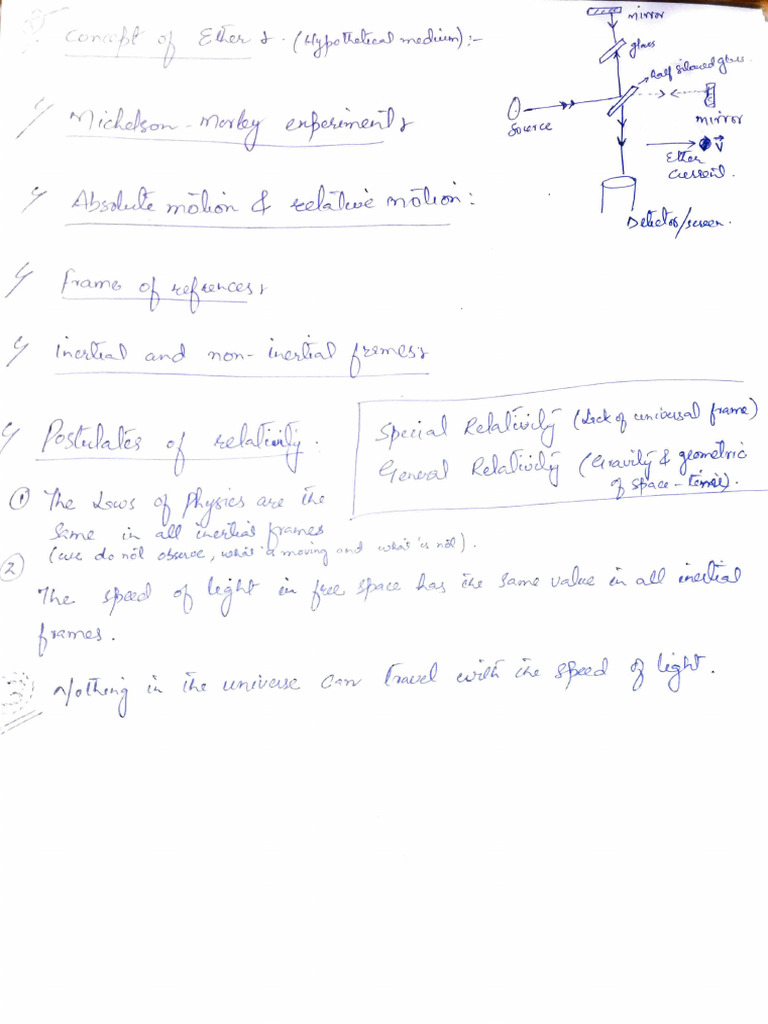 Concept of Ether :- (Hypothetical medium) :-
mirror
glass
half silvered glass
Source
mirror
Ether current.
V
Detector/screen.
Michelson-Morley experiment :
Absolute motion & relative motion :
Frame of refrences :
inertial and non-inertial frames :
Postulates of relativity.
Special Relativity (Lack of universal frame)
General Relativity (Gravity & geometric
of space-time).
① The Laws of Physics are the
same in all inertial frames
(we do not observe, what is moving and what is not).
②
The speed of light in free space has the same value in all inertial
frames.
③ Nothing in the universe can travel with the speed of light.